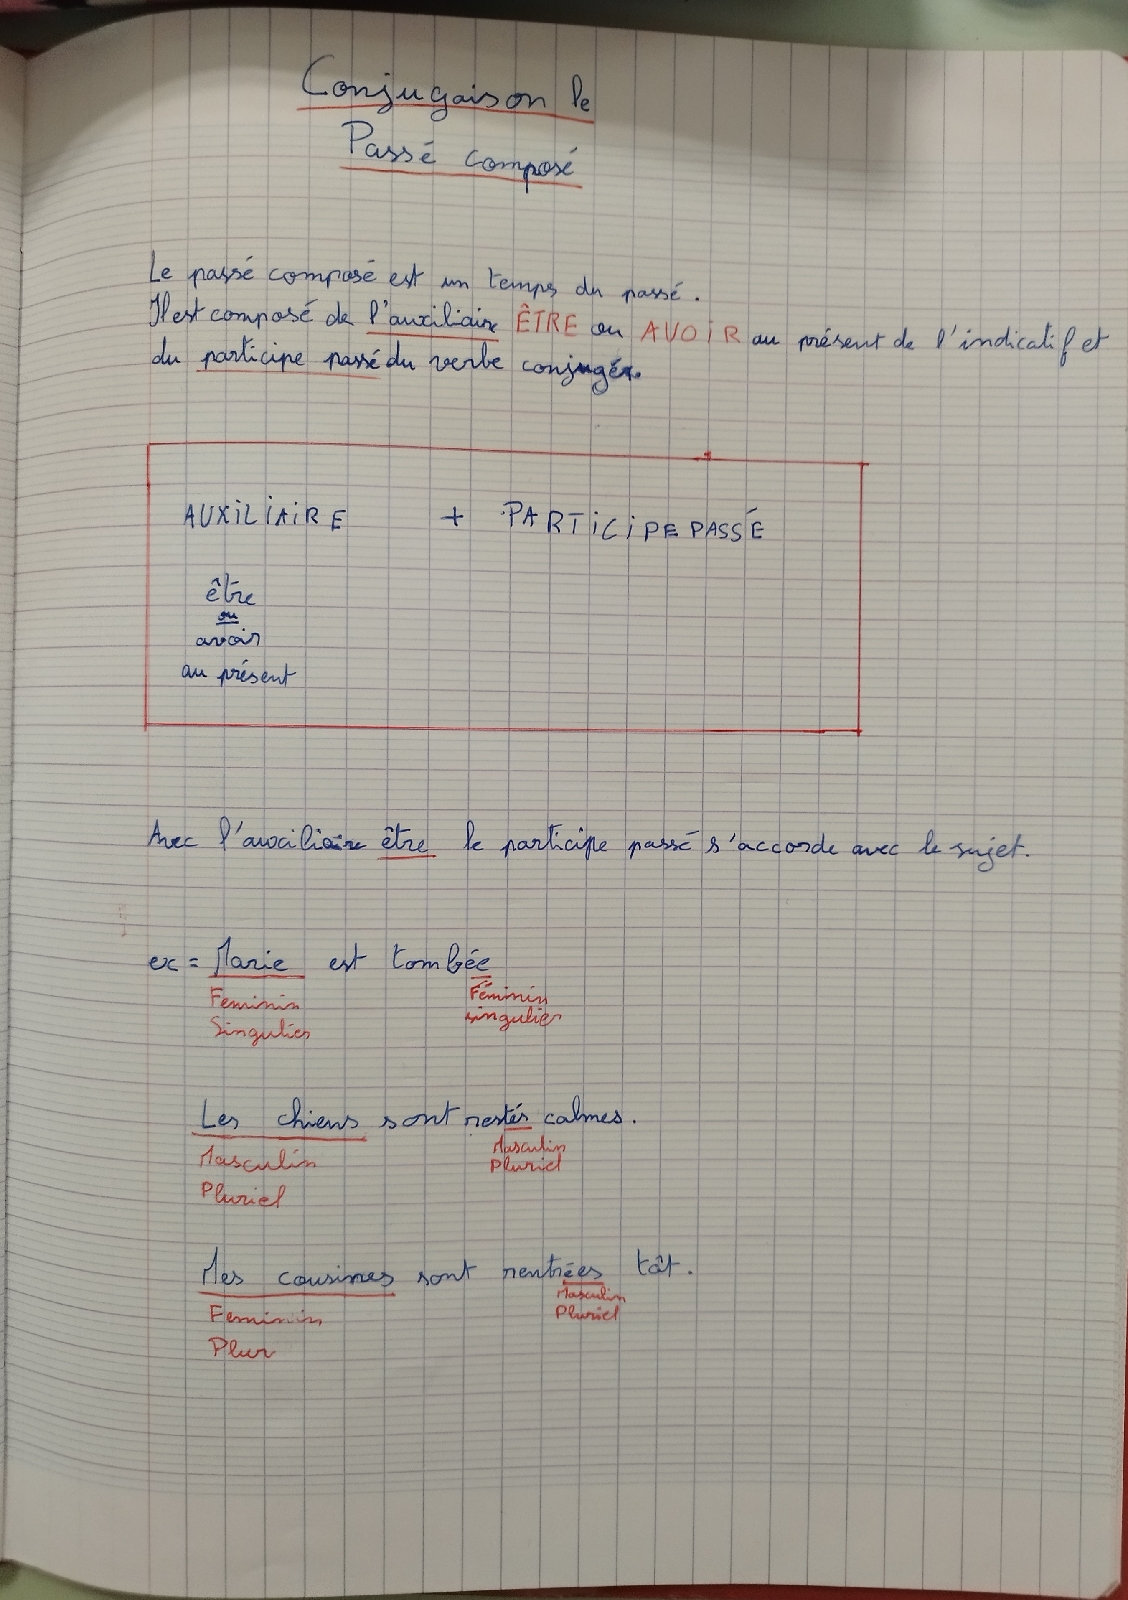 Conjugaison le
Passé composé
Le passé composé est un temps du passé.
Il est composé de l'auxiliaire ÊTRE ou AVOIR au présent de l'indicatif et
du participe passé du verbe conjugé.
AUXILIAIRE + PARTICIPE PASSÉ
être
ou
avoir
au présent
Avec l'auxiliaire être le participe passé s'accorde avec le sujet.
ex = Marie est tombée
Feminin Féminin
Singulier singulier
Les chiens sont restés calmes.
Masculin Masculin
Pluriel Pluriel
Mes cousines sont rentrées tât.
Feminin Masculin
Plur Pluriel